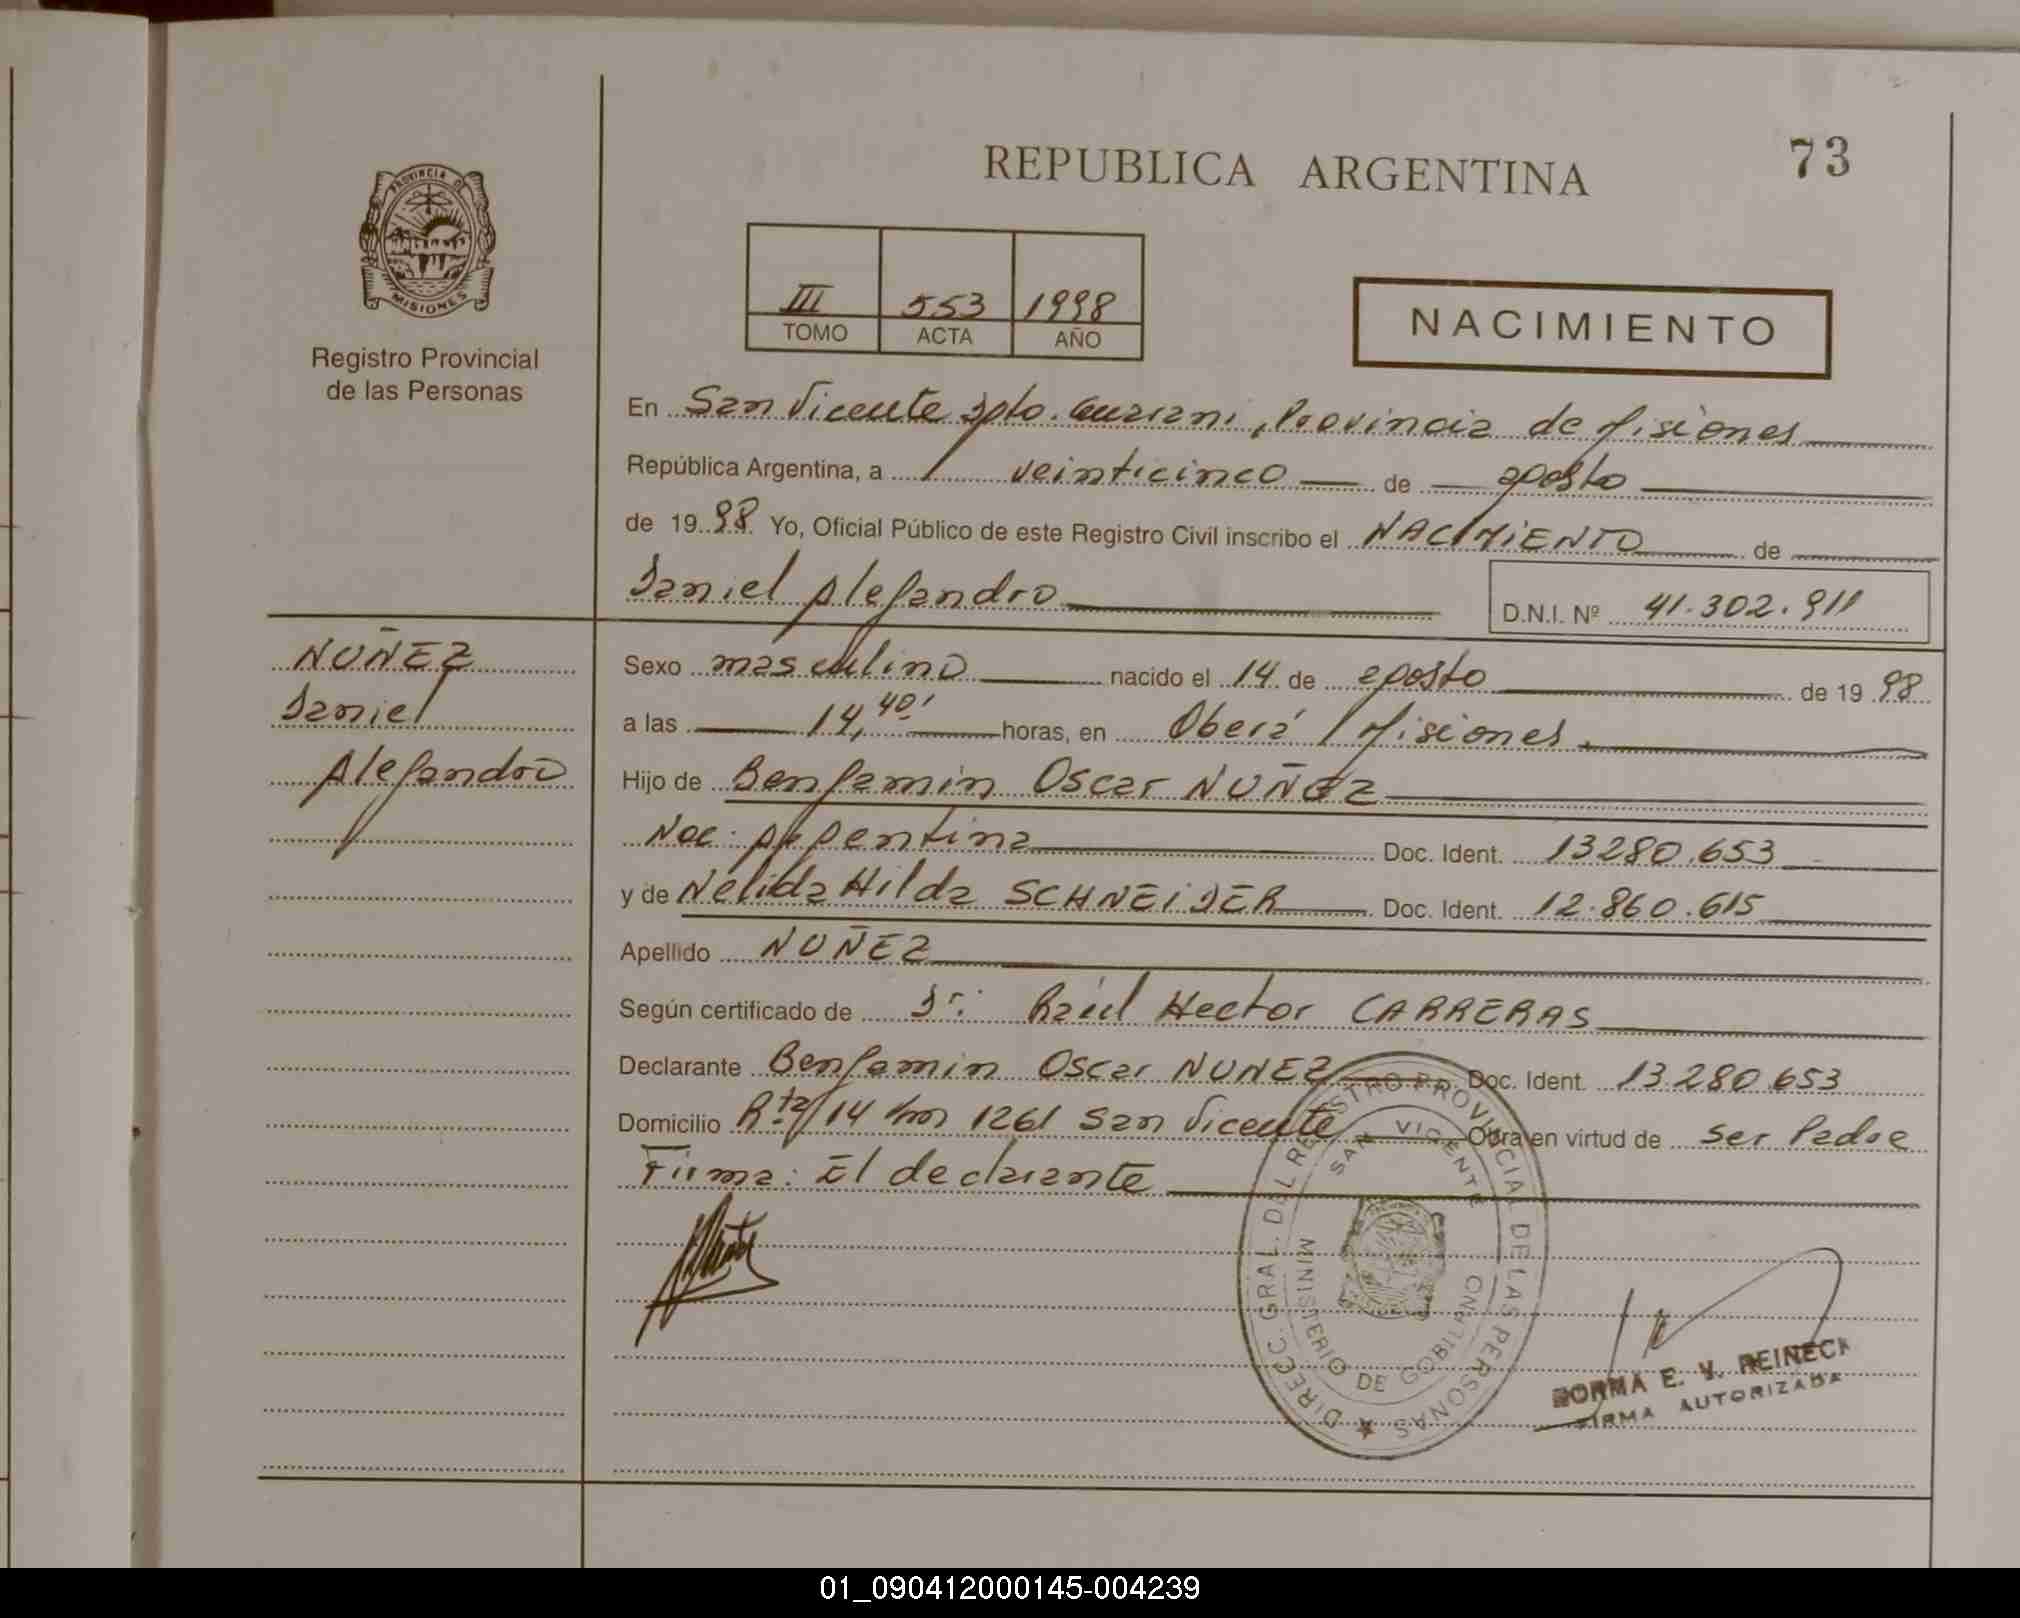 REPUBLICA ARGENTINA
73
PROVINCIA DE
MISIONES
Registro Provincial
de las Personas
III 553 1998
TOMO ACTA AÑO
NACIMIENTO
En San Vicente Dpto. Guarani, Provincia de Misiones
República Argentina, a veinticinco de agosto
de 1998 Yo, Oficial Público de este Registro Civil inscribo el NACIMIENTO de
Daniel Alejandro
D.N.I. Nº 41.302.911
NUÑEZ
Daniel
Alejandro
Sexo masculino nacido el 14 de agosto de 1998
a las 14,40' horas, en Oberá / Misiones
Hijo de Benjamin Oscar NUÑEZ
Nac: Argentina Doc. Ident. 13280.653
y de Nelida Hilda SCHNEIDER Doc. Ident. 12.860.615
Apellido NUÑEZ
Según certificado de Dr: Raúl Hector CARRERAS
Declarante Benjamin Oscar NUNEZ Doc. Ident. 13.280.653
Domicilio Rta/14 km 1261 San Vicente Obra en virtud de ser Padre
Firma: El declarante
DIRECC. GRAL. DEL REGISTRO PROVINCIAL DE LAS PERSONAS
SAN VICENTE
MINISTERIO DE GOBIERNO
NORMA E. V. REINECK
FIRMA AUTORIZADA
01_090412000145-004239